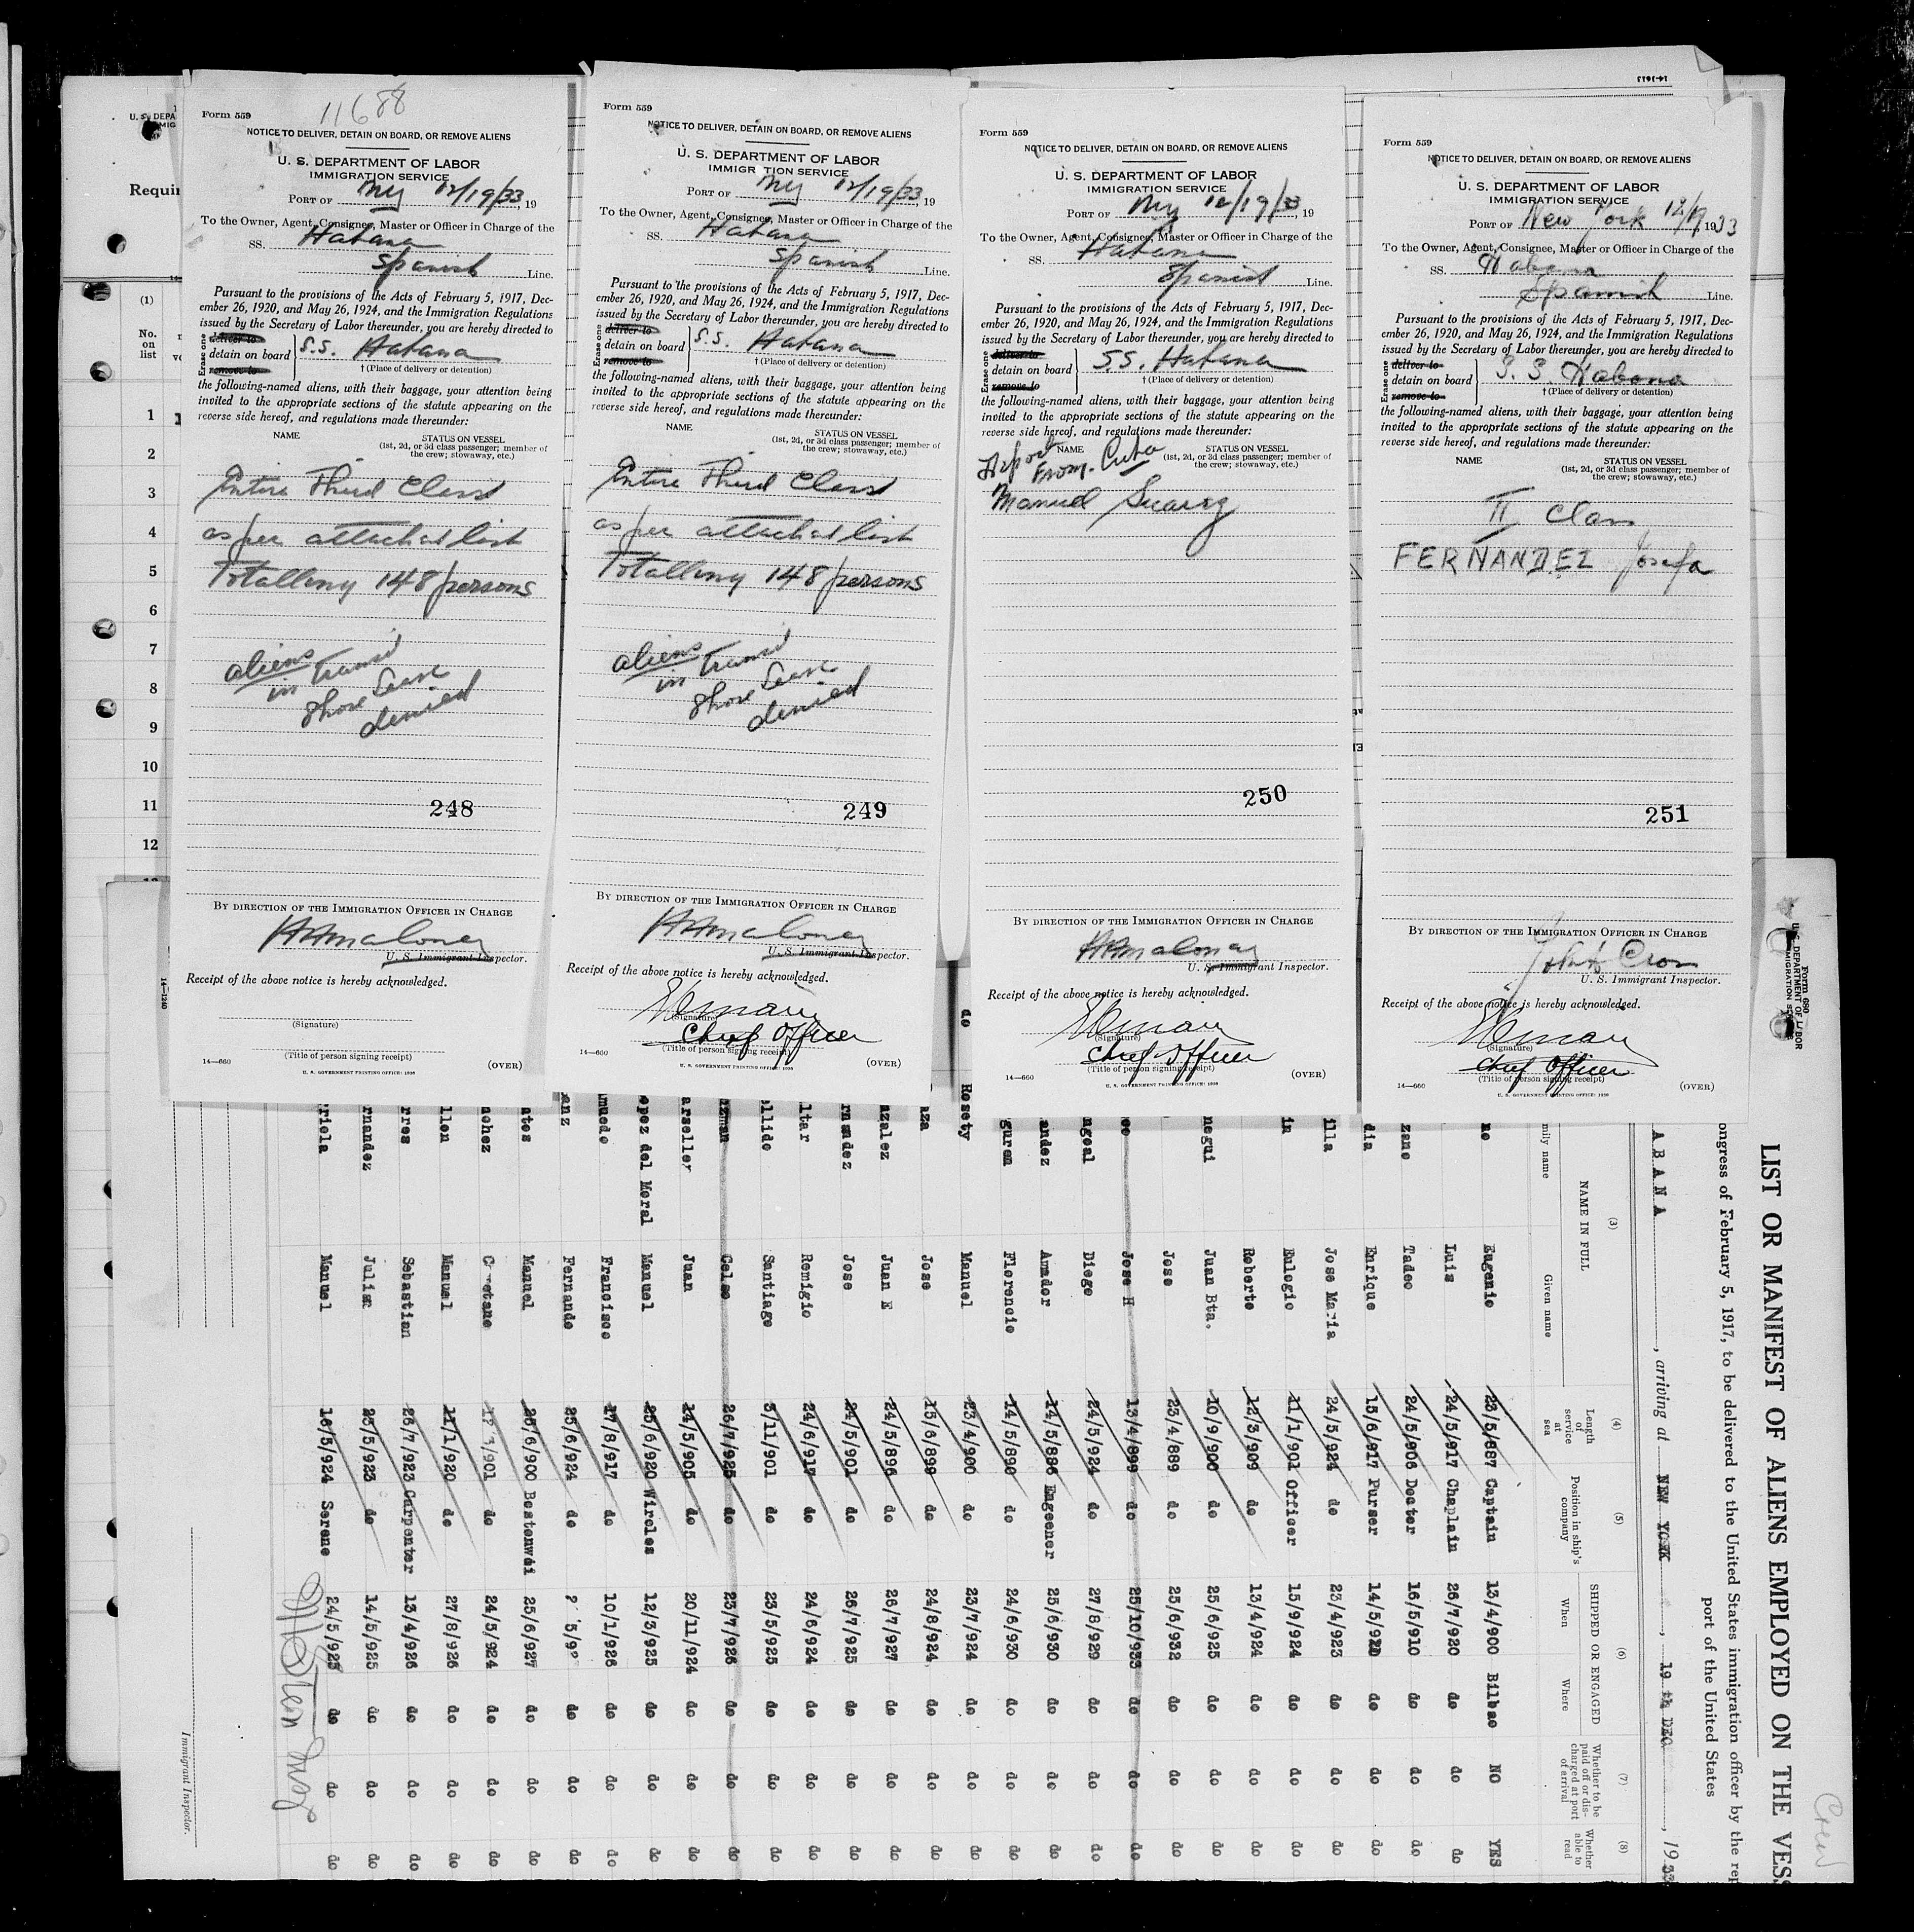 14-1613
U. S. DEPA
Requir
(1)
No.
on
list
1
2
3
4
5
6
7
8
9
10
11
12
11688
Form 559
NOTICE TO DELIVER, DETAIN ON BOARD, OR REMOVE ALIENS
U. S. DEPARTMENT OF LABOR
IMMIGRATION SERVICE
PORT OF NY 12/19/33, 19
To the Owner, Agent, Consignee, Master or Officer in Charge of the
SS. Habana
Spanish Line.
Pursuant to the provisions of the Acts of February 5, 1917, Dec-
ember 26, 1920, and May 26, 1924, and the Immigration Regulations
issued by the Secretary of Labor thereunder, you are hereby directed to
Erase one
deliver to
detain on board S.S. Habana
remove to
† (Place of delivery or detention)
the following-named aliens, with their baggage, your attention being
invited to the appropriate sections of the statute appearing on the
reverse side hereof, and regulations made thereunder:
NAME STATUS ON VESSEL
(1st, 2d, or 3d class passenger; member of
the crew; stowaway, etc.)
Entire Third Class
as per attached list
Totalling 148 persons
aliens
in transit
shore leave
denied
248
BY DIRECTION OF THE IMMIGRATION OFFICER IN CHARGE
HAMaloney
U. S. Immigrant Inspector.
Receipt of the above notice is hereby acknowledged.
(Signature)
(Title of person signing receipt)
14—660 (OVER)
U. S. GOVERNMENT PRINTING OFFICE: 1926
Form 559
NOTICE TO DELIVER, DETAIN ON BOARD, OR REMOVE ALIENS
U. S. DEPARTMENT OF LABOR
IMMIGR TION SERVICE
PORT OF NY 12/19/33, 19
To the Owner, Agent, Consignee, Master or Officer in Charge of the
SS. Habana
Spanish Line.
Pursuant to the provisions of the Acts of February 5, 1917, Dec-
ember 26, 1920, and May 26, 1924, and the Immigration Regulations
issued by the Secretary of Labor thereunder, you are hereby directed to
Erase one
deliver to
detain on board S.S. Habana
remove to
† (Place of delivery or detention)
the following-named aliens, with their baggage, your attention being
invited to the appropriate sections of the statute appearing on the
reverse side hereof, and regulations made thereunder:
NAME STATUS ON VESSEL
(1st, 2d, or 3d class passenger; member of
the crew; stowaway, etc.)
Entire Third Class
as per attached list
Totalling 148 persons
aliens
in transit
shore leave
denied
249
BY DIRECTION OF THE IMMIGRATION OFFICER IN CHARGE
HAMaloney
U. S. Immigrant Inspector.
Receipt of the above notice is hereby acknowledged.
(Signature)
Chief Officer
(Title of person signing receipt)
14—660 (OVER)
U. S. GOVERNMENT PRINTING OFFICE: 1926
Form 559
NOTICE TO DELIVER, DETAIN ON BOARD, OR REMOVE ALIENS
U. S. DEPARTMENT OF LABOR
IMMIGRATION SERVICE
PORT OF NY 12/19/33, 19
To the Owner, Agent, Consignee, Master or Officer in Charge of the
SS. Habana
Spanish Line.
Pursuant to the provisions of the Acts of February 5, 1917, Dec-
ember 26, 1920, and May 26, 1924, and the Immigration Regulations
issued by the Secretary of Labor thereunder, you are hereby directed to
Erase one
deliver to
detain on board S.S. Habana
remove to
† (Place of delivery or detention)
the following-named aliens, with their baggage, your attention being
invited to the appropriate sections of the statute appearing on the
reverse side hereof, and regulations made thereunder:
NAME STATUS ON VESSEL
(1st, 2d, or 3d class passenger; member of
the crew; stowaway, etc.)
Deport From Cuba
Manuel Suarez
250
BY DIRECTION OF THE IMMIGRATION OFFICER IN CHARGE
HAMaloney
U. S. Immigrant Inspector.
Receipt of the above notice is hereby acknowledged.
(Signature)
Chief Officer
(Title of person signing receipt)
14—660 (OVER)
U. S. GOVERNMENT PRINTING OFFICE: 1926
Form 559
NOTICE TO DELIVER, DETAIN ON BOARD, OR REMOVE ALIENS
U. S. DEPARTMENT OF LABOR
IMMIGRATION SERVICE
PORT OF New York 12/19, 1933
To the Owner, Agent, Consignee, Master or Officer in Charge of the
SS. Habana
Spanish Line.
Pursuant to the provisions of the Acts of February 5, 1917, Dec-
ember 26, 1920, and May 26, 1924, and the Immigration Regulations
issued by the Secretary of Labor thereunder, you are hereby directed to
Erase one
deliver to
detain on board S. S. Habana
remove to
† (Place of delivery or detention)
the following-named aliens, with their baggage, your attention being
invited to the appropriate sections of the statute appearing on the
reverse side hereof, and regulations made thereunder:
NAME STATUS ON VESSEL
(1st, 2d, or 3d class passenger; member of
the crew; stowaway, etc.)
II Class
FERNANDEZ Josefa
251
BY DIRECTION OF THE IMMIGRATION OFFICER IN CHARGE
U. S. Immigrant Inspector.
Receipt of the above notice is hereby acknowledged.
(Signature)
Chief Officer
(Title of person signing receipt)
14—660 (OVER)
U. S. GOVERNMENT PRINTING OFFICE: 1926
Form 680
U. S. DEPARTMENT OF LABOR
IMMIGRATION SE
Crew
LIST OR MANIFEST OF ALIENS EMPLOYED ON THE VESS
ongress of February 5, 1917, to be delivered to the United States immigration officer by the rep
port of the United States
ABANA, arriving at NEW YORK, 19 th DEC, 1933
(3) (4) (5) (6) (7) (8)
NAME IN FULL
mily name Given name
Length of service at sea
Position in ship's company
SHIPPED OR ENGAGED
When Where
Whether to be paid off or discharged at port of arrival
Whether able to read
ne Eugenio 23/5/887 Captain 13/4/900 Bilbao NO YES
Luis 24/5/917 Chaplain 26/7/920 do do do
zano Tadeo 24/5/906 Doctor 16/5/910 do do do
dia Enrique 15/6/917 Purser 14/5/921 do do do
illa Jose Maria 24/5/924 do 23/4/923 do do do
in Eulogio 11/1/901 Officer 15/9/924 do do do
Roberto 12/3/909 do 13/4/924 do do do
negui Juan Bta. 10/9/900 do 25/6/925 do do do
Jose 23/4/889 do 25/6/932 do do do
Jose H 13/4/899 do 25/10/933 do do do
ngoal Diego 24/5/924 do 27/8/929 do do do
andez Amador 14/5/886 Engeener 25/6/930 do do do
guren Florencio 14/5/890 do 24/6/930 do do do
do Rosety Manuel 23/4/900 do 23/7/924 do do do
aza Jose 15/6/899 do 24/8/924 do do do
azalez Juan E 24/5/896 do 26/7/927 do do do
rnandez Jose 24/5/901 do 26/7/925 do do do
ltar Remigio 24/6/917 do 24/6/924 do do do
llido Santiago 3/11/901 do 23/5/925 do do do
uzman Celso 26/7/925 do 23/7/926 do do do
arseller Juan 14/5/905 do 20/11/924 do do do
opez del Moral Manuel 25/6/920 Wireles 12/3/925 do do do
amuedo Francisco 17/8/917 do 10/1/926 do do do
anz Fernando 25/6/924 do do do do
ates Manuel 25/6/900 Bostenwai 25/6/927 do do do
achez Cayetano do 24/5/924 do do do
llen Manuel 11/1/920 do 27/8/926 do do do
rres Sebastian 26/7/923 Carpenter 13/4/926 do do do
rnandez Julian 23/5/923 do 14/5/925 do do do
riela Manuel 16/5/924 Sereno 24/5/923 do do do
Immigrant Inspector.
14—1240